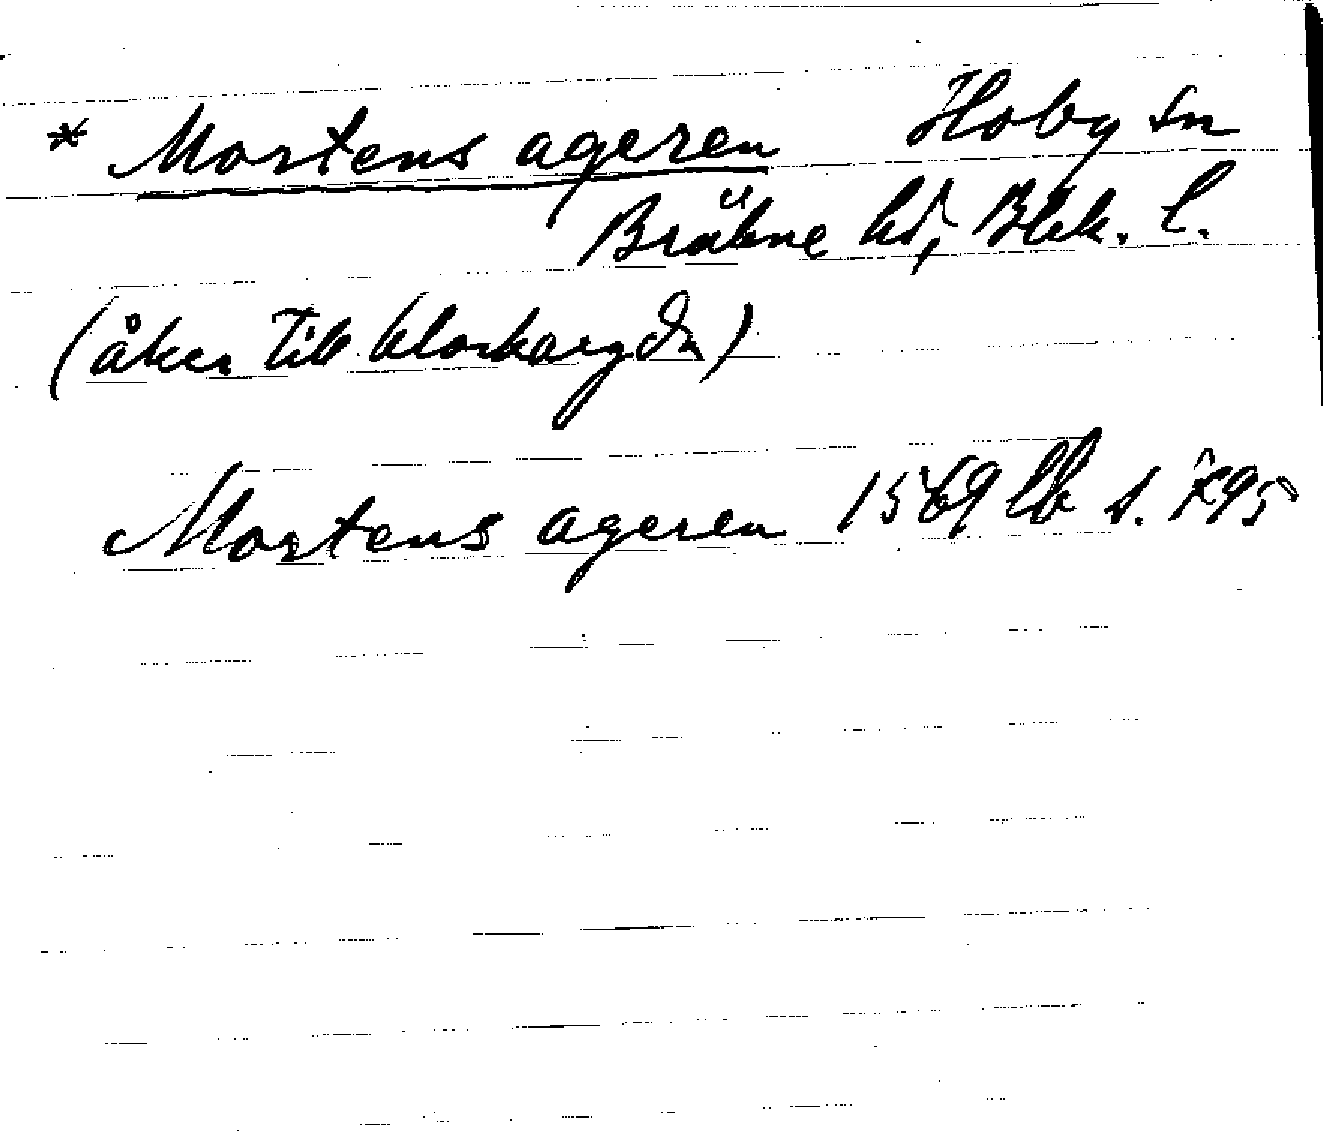 * Mortens ageren Hoby sn
Bräkne hd, Blek. l.
(åker till klockargdn)
Mortens ageren 1569 lb s. 195